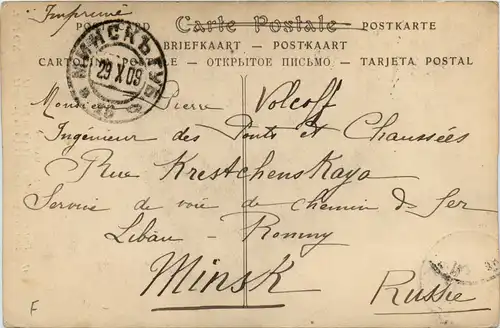 Imprimé
POST CARD Carte Postale POSTKARTE
BRIEFKAART — POSTKAART
CARTOLINA POSTALE — ОТКРЫТОЕ ПИСЬМО — TARJETA POSTAL
МИНСКЪ ГУБ
29 X 09
Monsieur Pierre Volcoff
Ingénieur des Ponts et Chaussées
Rue Krestchenskaya
Service de voie de chemin de fer
Libau - Romny
Minsk
Russie
F